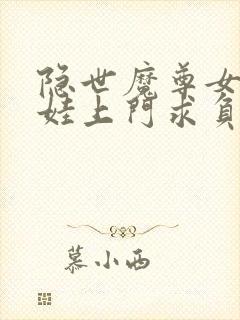 隐世魔尊女
娃上門求負
慕小西